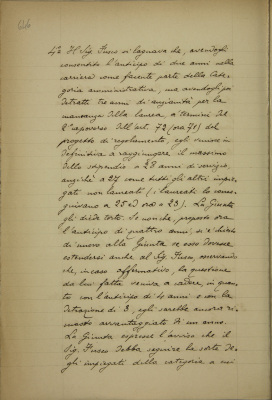 4° Il Sig. Fusco si lagnava che, avendogli
consentito l'anticipo di due anni nella
carriera come facente parte della Cate-
goria amministrativa, ma avendogli poi
detratti tre anni di anzianità per la
mancanza della laurea, a termini del
2° capoverso dell'art. 72 (ora 71) del
progetto di regolamento, egli veniva in
definitiva a raggiungere il massimo
dello stipendio a 28 anni di servizio,
anzichè a 27 come tutti gli altri impie-
gati non laureati (i laureati lo conse-
guivano a 25 ed ora a 23). La Giunta
gli diede torto. Se non che, proposto ora
l'anticipo di quattro anni, si è chiesto
di nuovo alla Giunta se esso dovesse
estendersi anche al Sig. Fusco, osservando
che, in caso affermativo, la questione
da lui fatta veniva a cadere, in quan-
to con l'anticipo di 4 anni e con la
detrazione di 3, egli sarebbe ancora ri-
masto avvantaggiato di un anno.
La Giunta espresse l'avviso che il
Sig. Fusco debba seguire la sorte de-
gli impiegati della categoria a cui